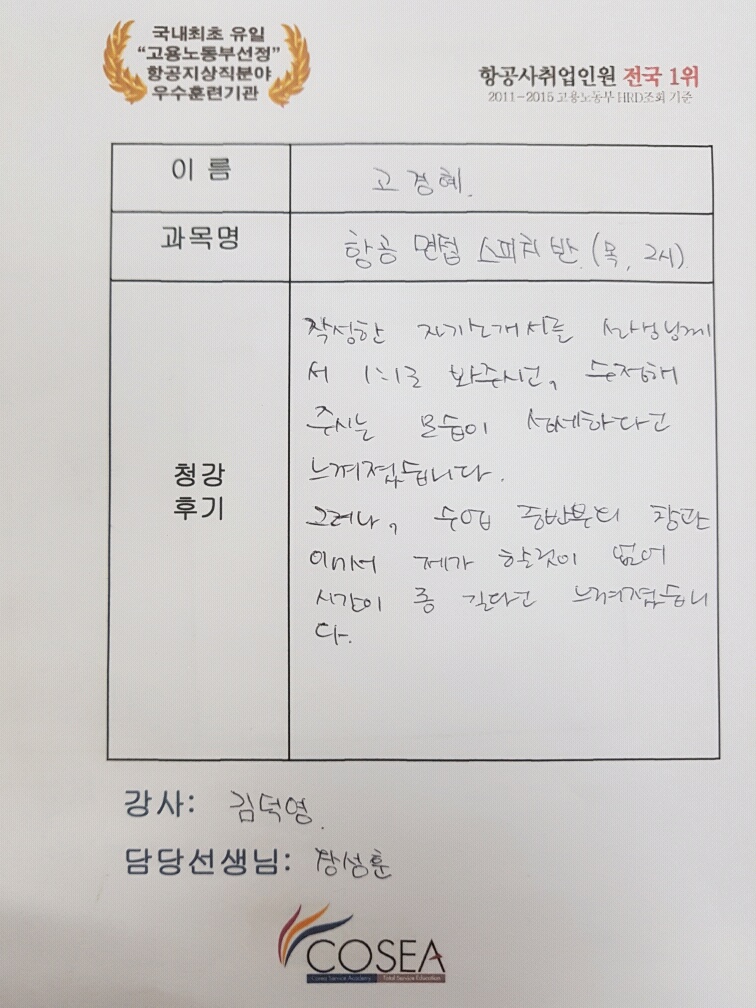 국내최초 유일
"고용노동부선정"
항공지상직분야
우수훈련기관
항공사취업인원 전국 1위
2011-2015 고용노동부 HRD조회 기준
이 름
고경혜.
과목명
항공 면접 스피치반. (목, 2시)
청강
후기
작성한 자기소개서를 선생님께
서 1:1로 봐주시고, 수정해
주시는 모습이 섬세하다고
느껴졌습니다.
그러나, 수업 중반부터 참관
이어서 제가 할것이 없어
시간이 좀 길다고 느껴졌습니
다.
강사: 김덕영.
담당선생님: 장성훈
COSEA
Corea Service Academy Total Service Education